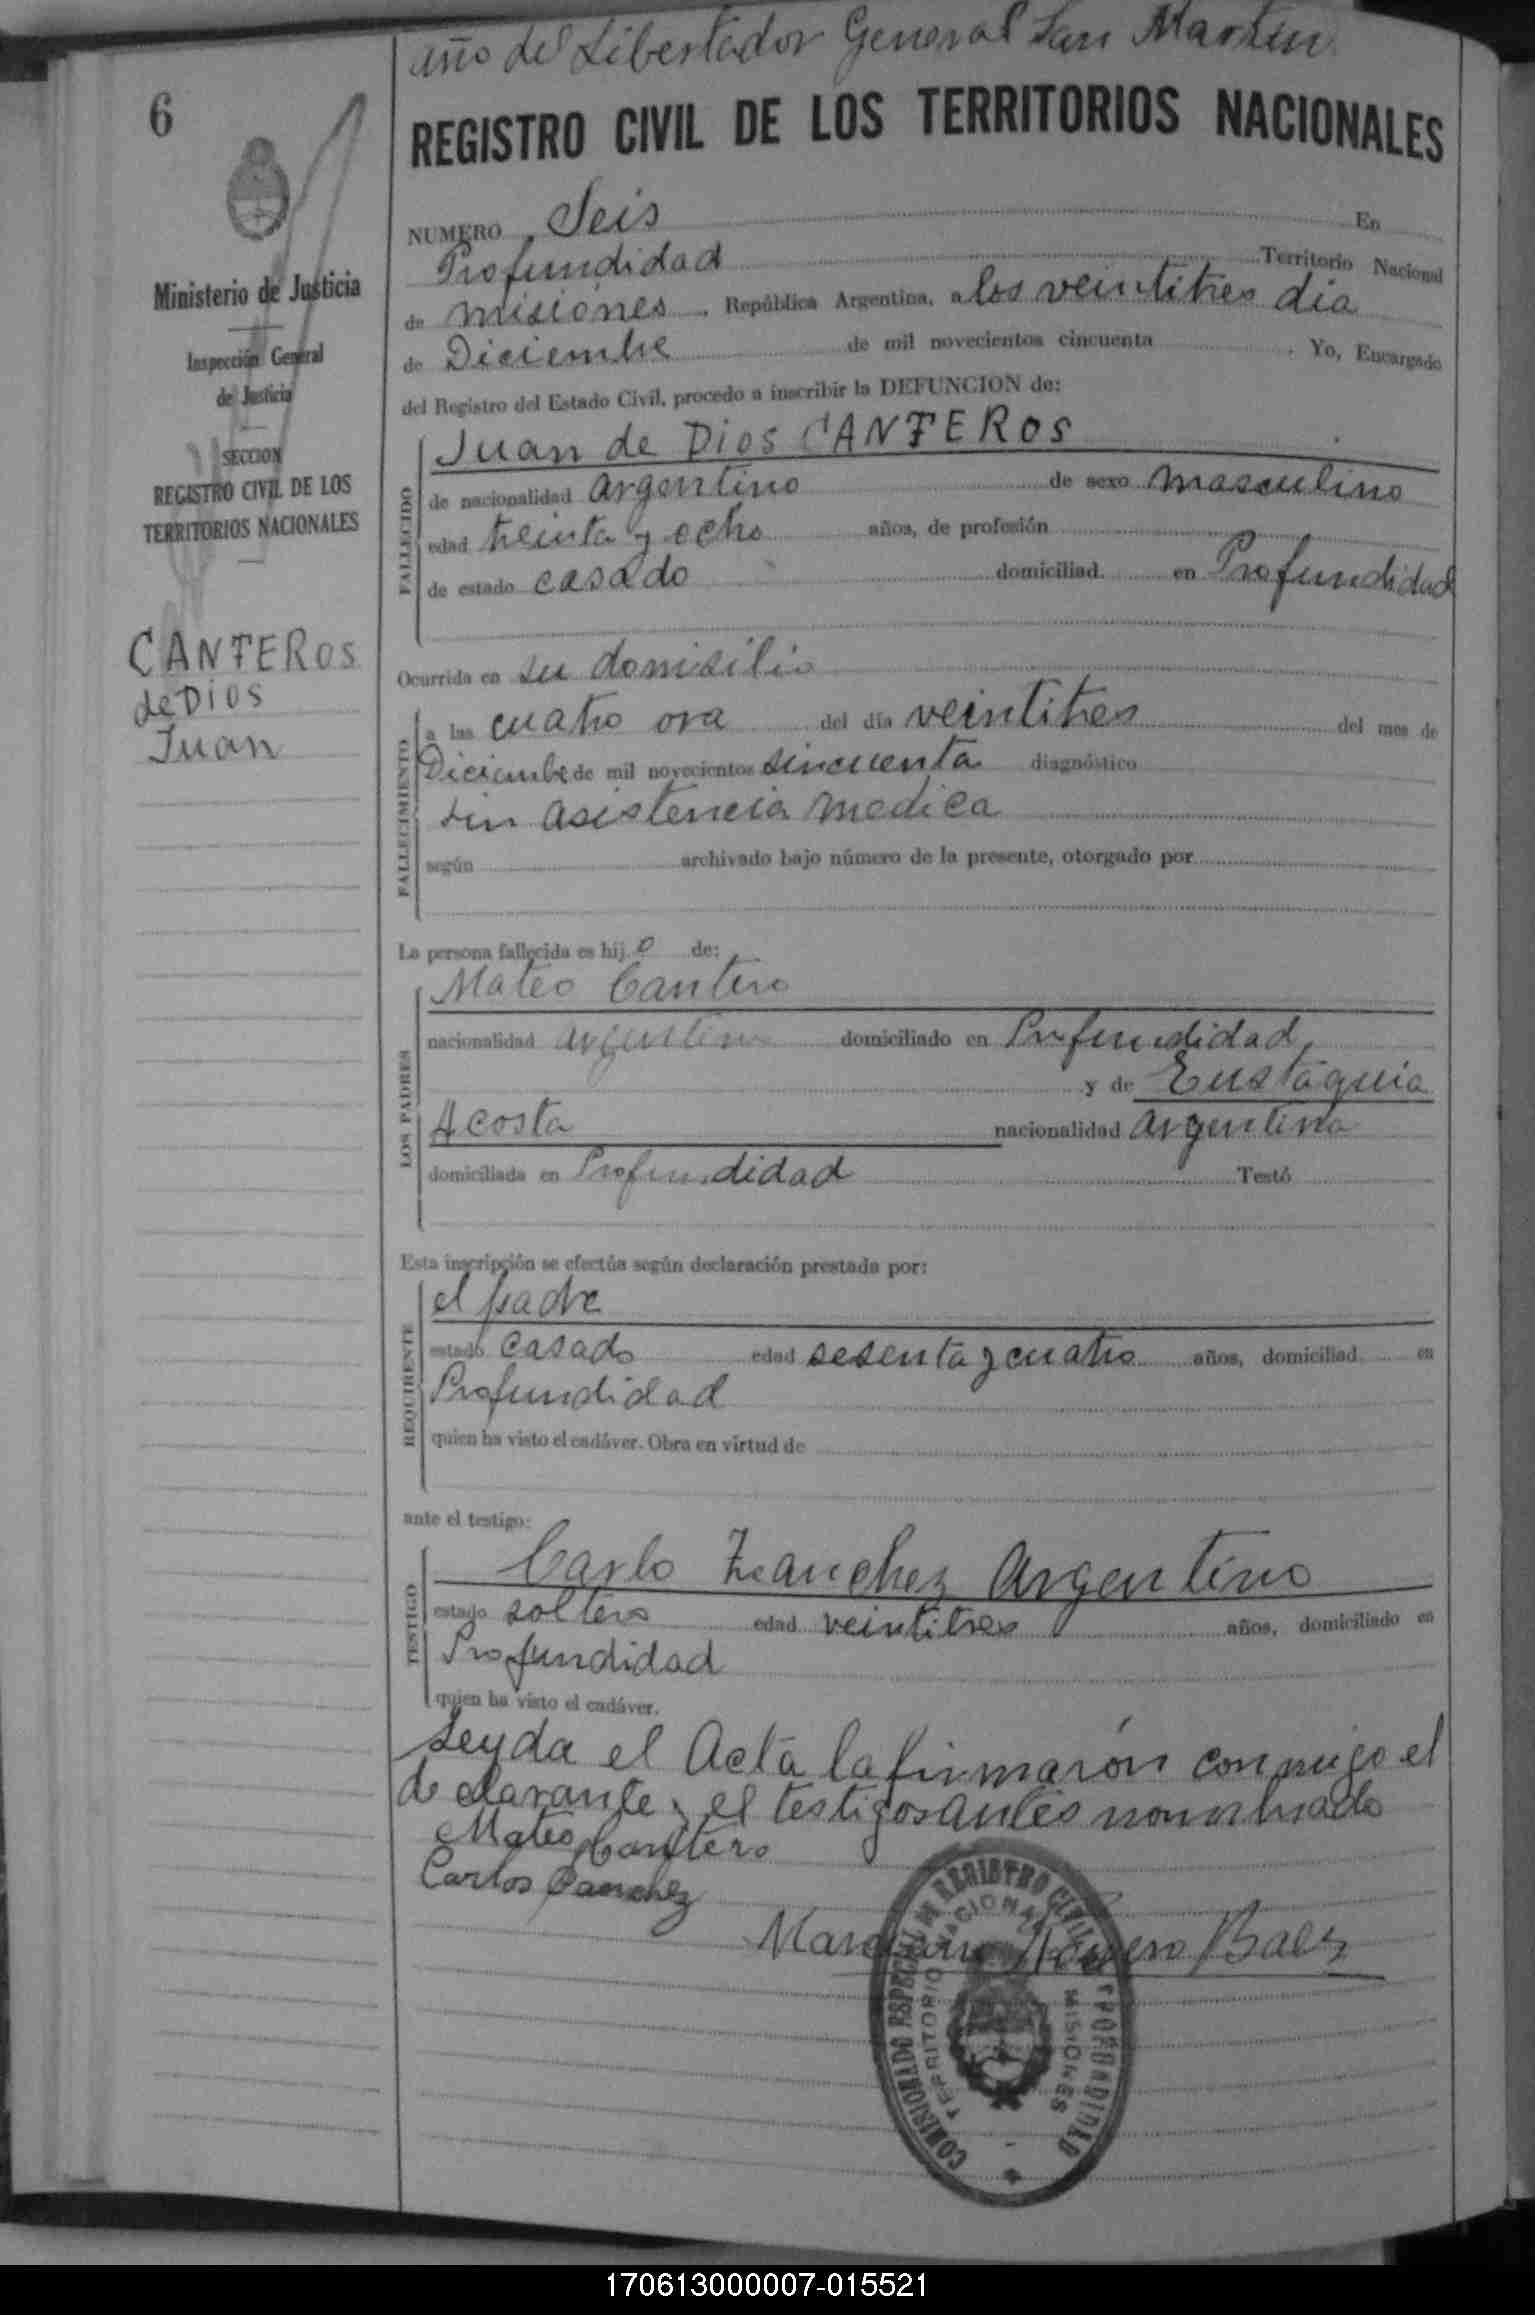 año del Libertador General San Martin
6
REGISTRO CIVIL DE LOS TERRITORIOS NACIONALES
Ministerio de Justicia
Inspección General
de Justicia
SECCION
REGISTRO CIVIL DE LOS
TERRITORIOS NACIONALES
CANTEROS
de DIOS
Juan
NUMERO Seis En
Profundidad Territorio Nacional
de misiones, República Argentina, a los veintitres dia
de Diciembre de mil novecientos cincuenta. Yo, Encargado
del Registro del Estado Civil, procedo a inscribir la DEFUNCION de:
FALLECIDO
Juan de Dios CANTEROS
de nacionalidad argentino de sexo masculino
edad treinta y ocho años, de profesión
de estado casado domiciliad en Profundidad
Ocurrida en su domisilio
FALLECIMIENTO
a las cuatro ora del día veintitres del mes de
Diciembe de mil novecientos sincuenta diagnóstico
sin asistencia medica
según archivado bajo número de la presente, otorgado por
La persona fallecida es hijo de:
LOS PADRES
Mateo Cantero
nacionalidad argentino domiciliado en Profundidad
y de Eustaquia
Acosta nacionalidad argentina
domiciliada en Profundidad Testó
Esta inscripción se efectúa según declaración prestada por:
REQUIRENTE
el padre
estado casado edad sesenta y cuatro años, domiciliad en
Profundidad
quien ha visto el cadáver. Obra en virtud de
ante el testigo:
TESTIGO
Carlo Argentino
estado soltero edad veintitres años, domiciliado en
Profundidad
quien ha visto el cadáver.
Leyda el Acta la firmarón conmigo el
declarante y el testigos antes nombrado
Mateo Cantero
Carlos Sanchez
Baez
COMISIONADO ESPECIAL DE REGISTRO CIVIL PROFUNDIDAD
TERRITORIO NACIONAL MISIONES
170613000007-015521